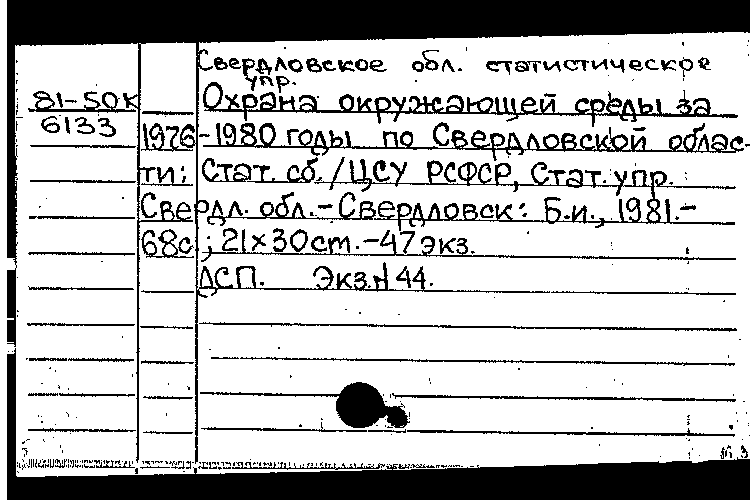 Свердловское обл. статистическое
упр.
81-50К
6133
Охрана окружающей среды за
1976-1980 годы по Свердловской облас-
ти: Стат. сб. / ЦСУ РСФСР, Стат. упр.
Свердл. обл. - Свердловск: Б.и., 1981.-
68с.; 21х30 cm. - 47 экз.
ДСП. Экз.N 44.